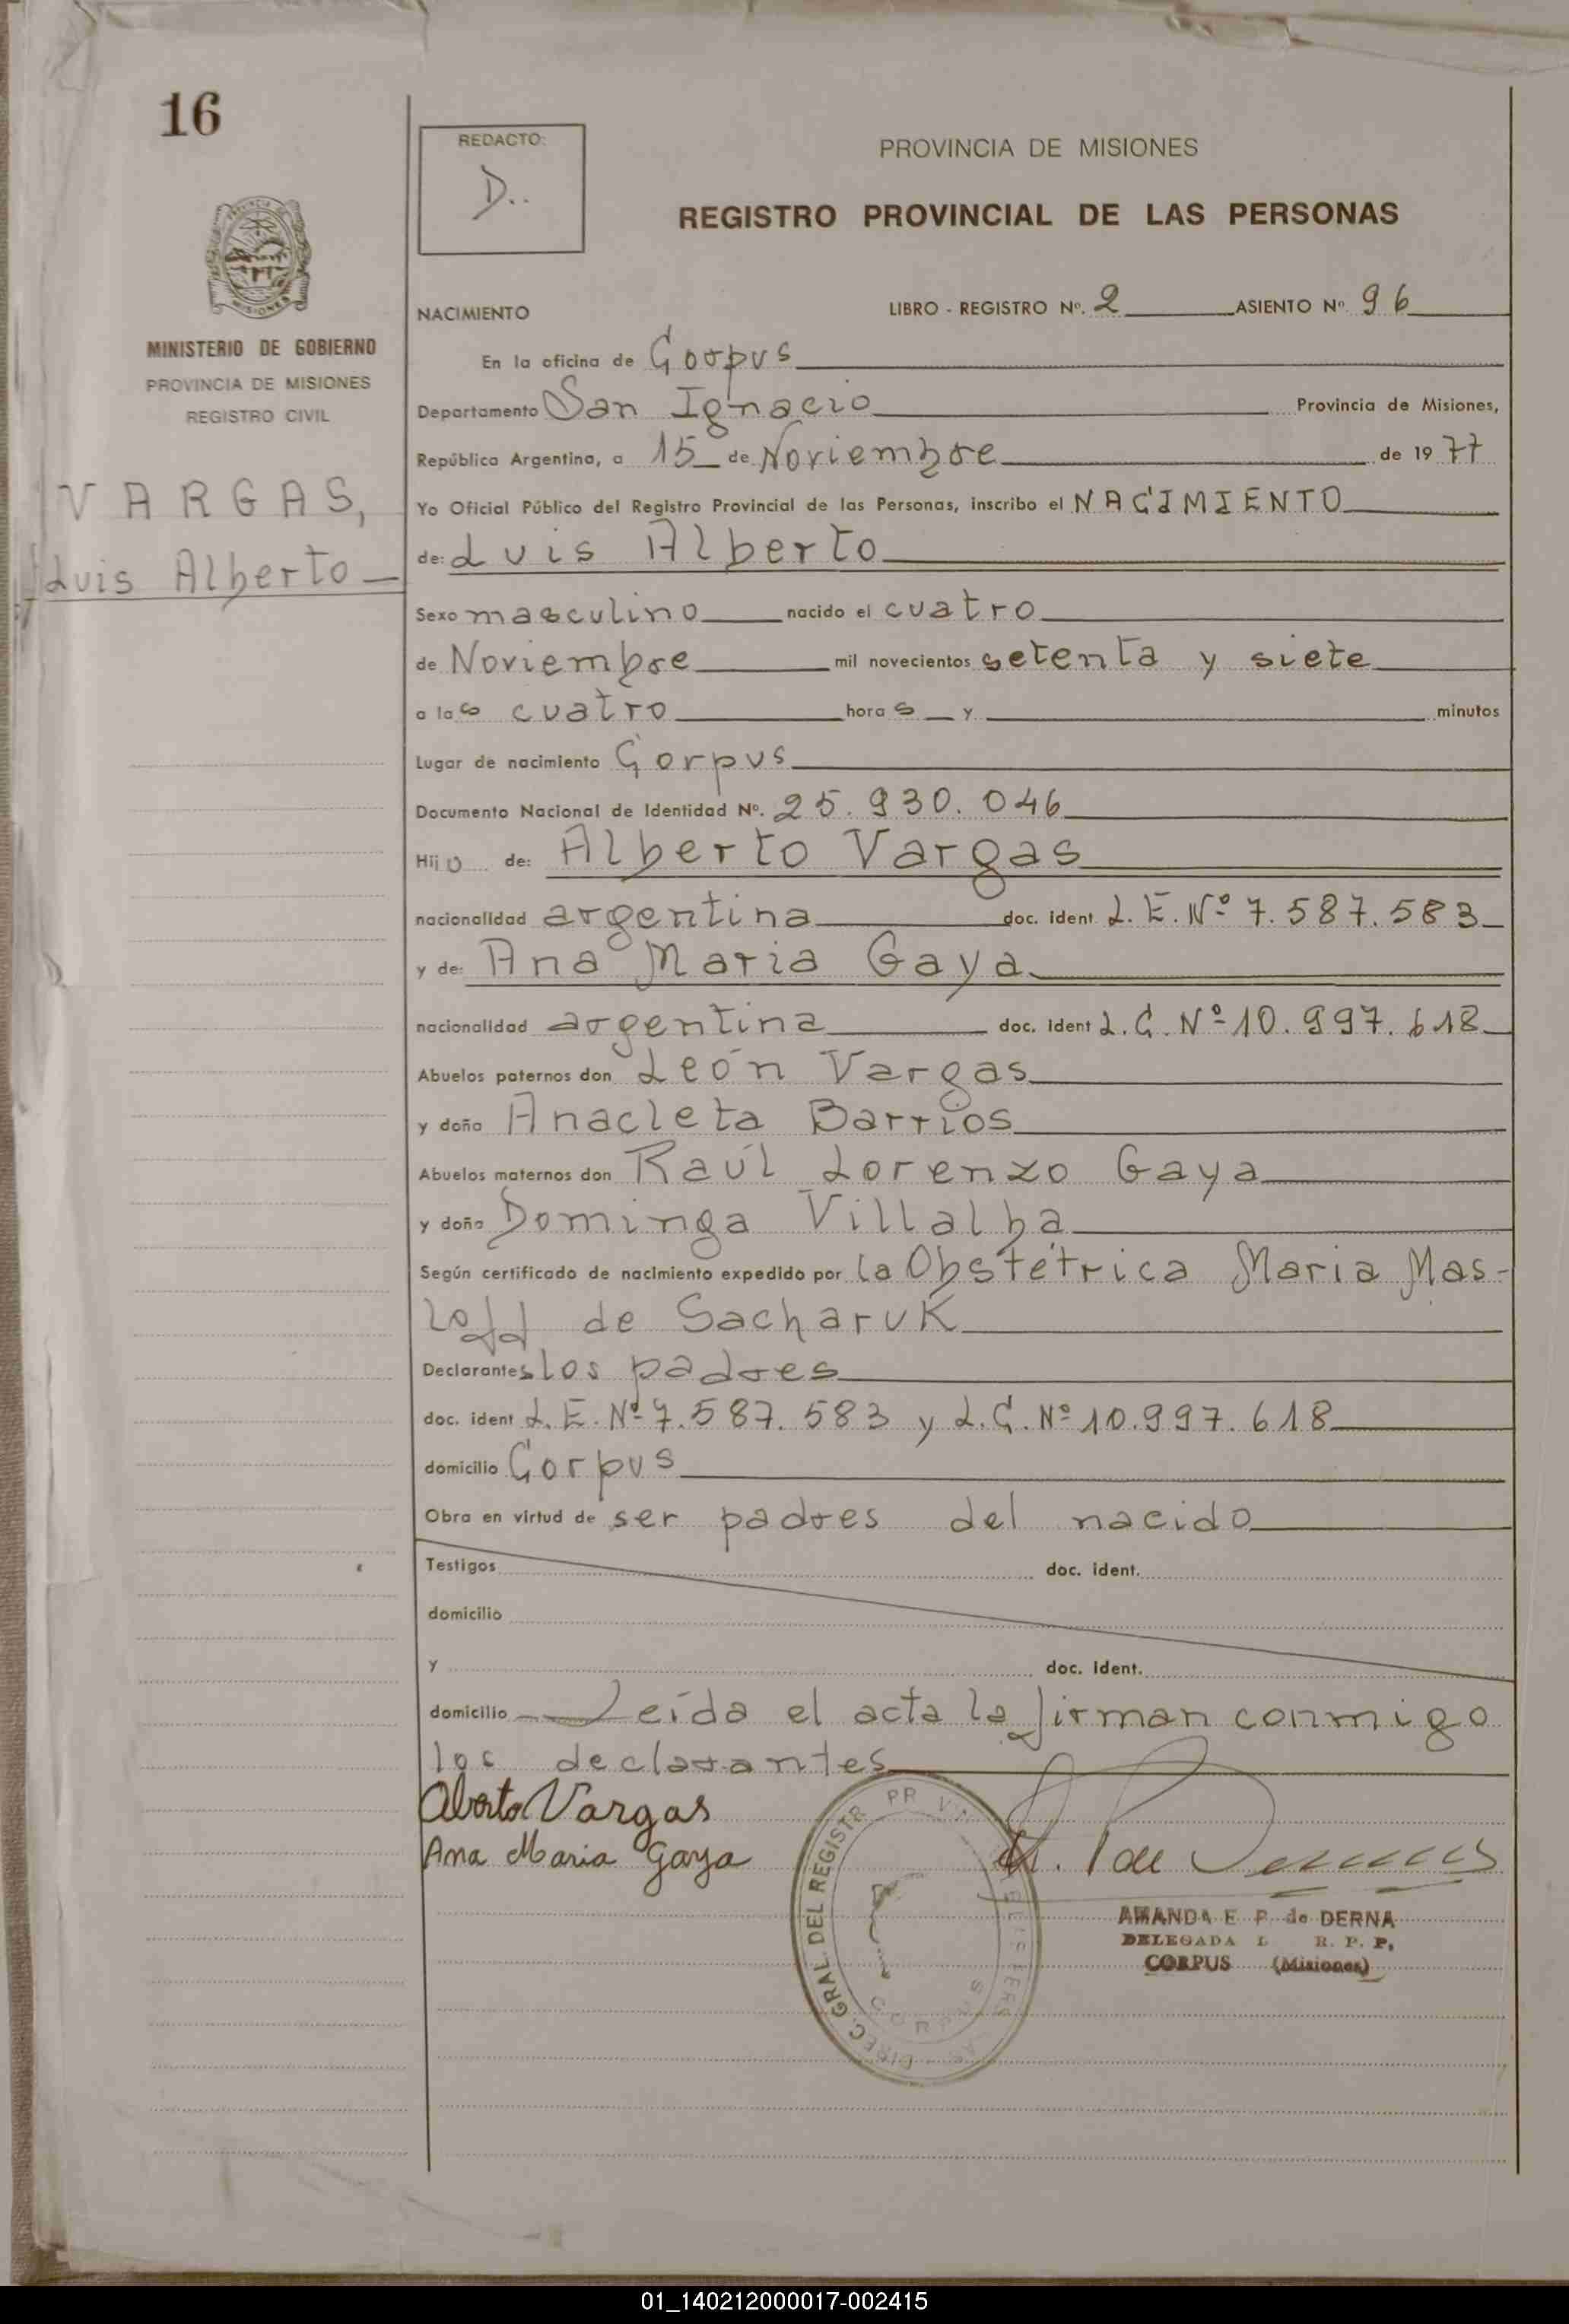 16
REDACTO:
D..
PROVINCIA DE MISIONES
REGISTRO PROVINCIAL DE LAS PERSONAS
MINISTERIO DE GOBIERNO
PROVINCIA DE MISIONES
REGISTRO CIVIL
VARGAS,
Luis Alberto
NACIMIENTO LIBRO - REGISTRO Nº. 2 ASIENTO Nº 96
En la oficina de Corpus
Departamento San Ignacio Provincia de Misiones,
República Argentina, a 15 de Noviembre de 1977
Yo Oficial Público del Registro Provincial de las Personas, inscribo el NACIMIENTO
de: Luis Alberto
Sexo masculino nacido el cuatro
de Noviembre mil novecientos setenta y siete
a las cuatro horas y minutos
Lugar de nacimiento Corpus
Documento Nacional de Identidad Nº. 25.930.046
Hijo de: Alberto Vargas
nacionalidad argentina doc. ident L.E. Nº 7.587.583
y de: Ana Maria Gaya
nacionalidad argentina doc. ident L.C. Nº 10.997.618
Abuelos paternos don León Vargas
y doña Anacleta Barrios
Abuelos maternos don Raúl Lorenzo Gaya
y doña Dominga Villalba
Según certificado de nacimiento expedido por la Obstétrica Maria Mas-
loff de Sacharuk
Declarantes los padres
doc. ident L.E. Nº 7.587.583 y L.C. Nº 10.997.618
domicilio Corpus
Obra en virtud de ser padres del nacido
Testigos doc. ident.
domicilio
y doc. ident.
domicilio Leída el acta la firman conmigo
los declarantes
Alberto Vargas
Ana Maria Gaya
DIREC. GRAL. DEL REGISTR PR VIN
CORPUS
AMANDA E. P. de DERNA
DELEGADA R. P. P.
CORPUS (Misiones)
01_140212000017-002415